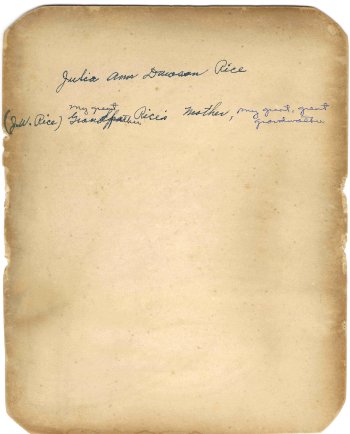 Julia Ann Dawson Rice
my great
(J.W. Rice) Grandfather Rice's Mother, my great, great
grandmother